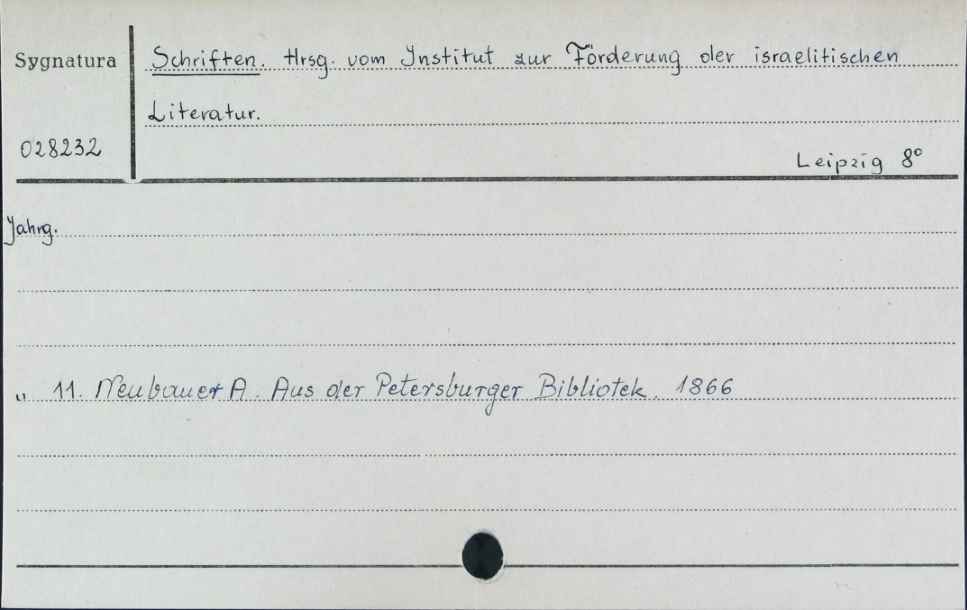 Sygnatura
Schriften. Hrsg. vom Institut zur Förderung der israelitischen
Literatur.
028232
Leipzig 8°
Jahrg.
„ 11. Neubauer A. Aus der Petersburger Bibliotek. 1866